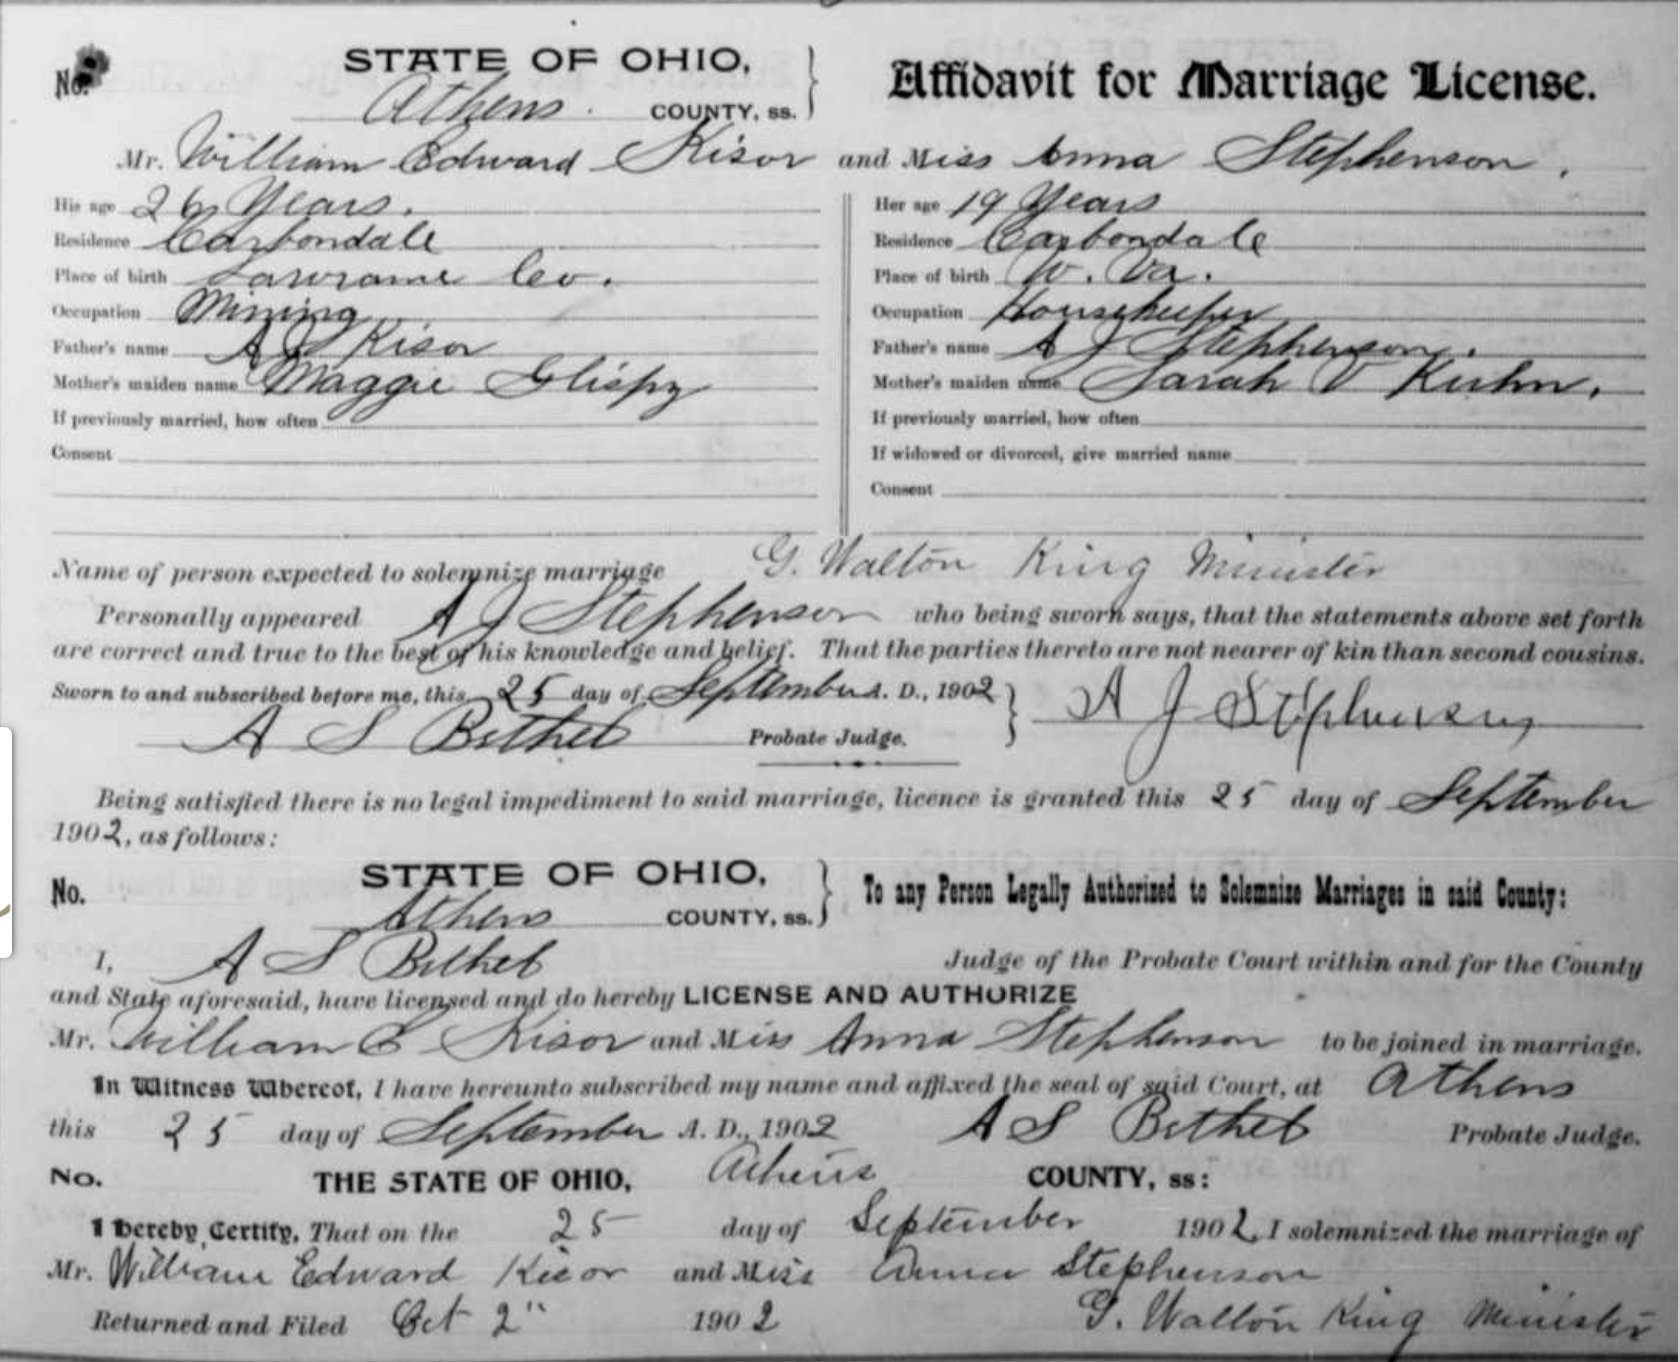 No. STATE OF OHIO,
Athens. COUNTY, ss.
Affidavit for Marriage License.
Mr. William Edward Kisor and Miss Anna Stephenson.
His age 26 Years.
Residence Carbondale
Place of birth Lawrance Co.
Occupation Mining
Father's name A J Kisor
Mother's maiden name Maggie
If previously married, how often
Consent
Her age 19 Years
Residence Carbondale
Place of birth W. Va.
Occupation Housekeeper
Father's name A J Stephenson.
Mother's maiden name Sarah V Kuhn.
If previously married, how often
If widowed or divorced, give married name
Consent
Name of person expected to solemnize marriage G. Walton King Minister
Personally appeared A J Stephenson who being sworn says, that the statements above set forth
are correct and true to the best of his knowledge and belief. That the parties thereto are not nearer of kin than second cousins.
Sworn to and subscribed before me, this 25 day of September A. D., 1902 A J Stephenson
A S Bethel Probate Judge.
Being satisfied there is no legal impediment to said marriage, licence is granted this 25 day of September
1902, as follows:
No. STATE OF OHIO,
Athens COUNTY, ss.
To any Person Legally Authorized to Solemnize Marriages in said County:
I, A S Bethel Judge of the Probate Court within and for the County
and State aforesaid, have licensed and do hereby LICENSE AND AUTHORIZE
Mr. William E Kisor and Miss Anna Stephenson to be joined in marriage.
In Witness Whereof, I have hereunto subscribed my name and affixed the seal of said Court, at Athens
this 25 day of September A. D., 1902 A S Bethel Probate Judge.
No. THE STATE OF OHIO, Athens COUNTY, ss:
I Hereby Certify, That on the 25 day of September 1902, I solemnized the marriage of
Mr. William Edward Kisor and Miss Anna Stephenson
Returned and Filed Oct 2" 1902 G. Walton King Minister